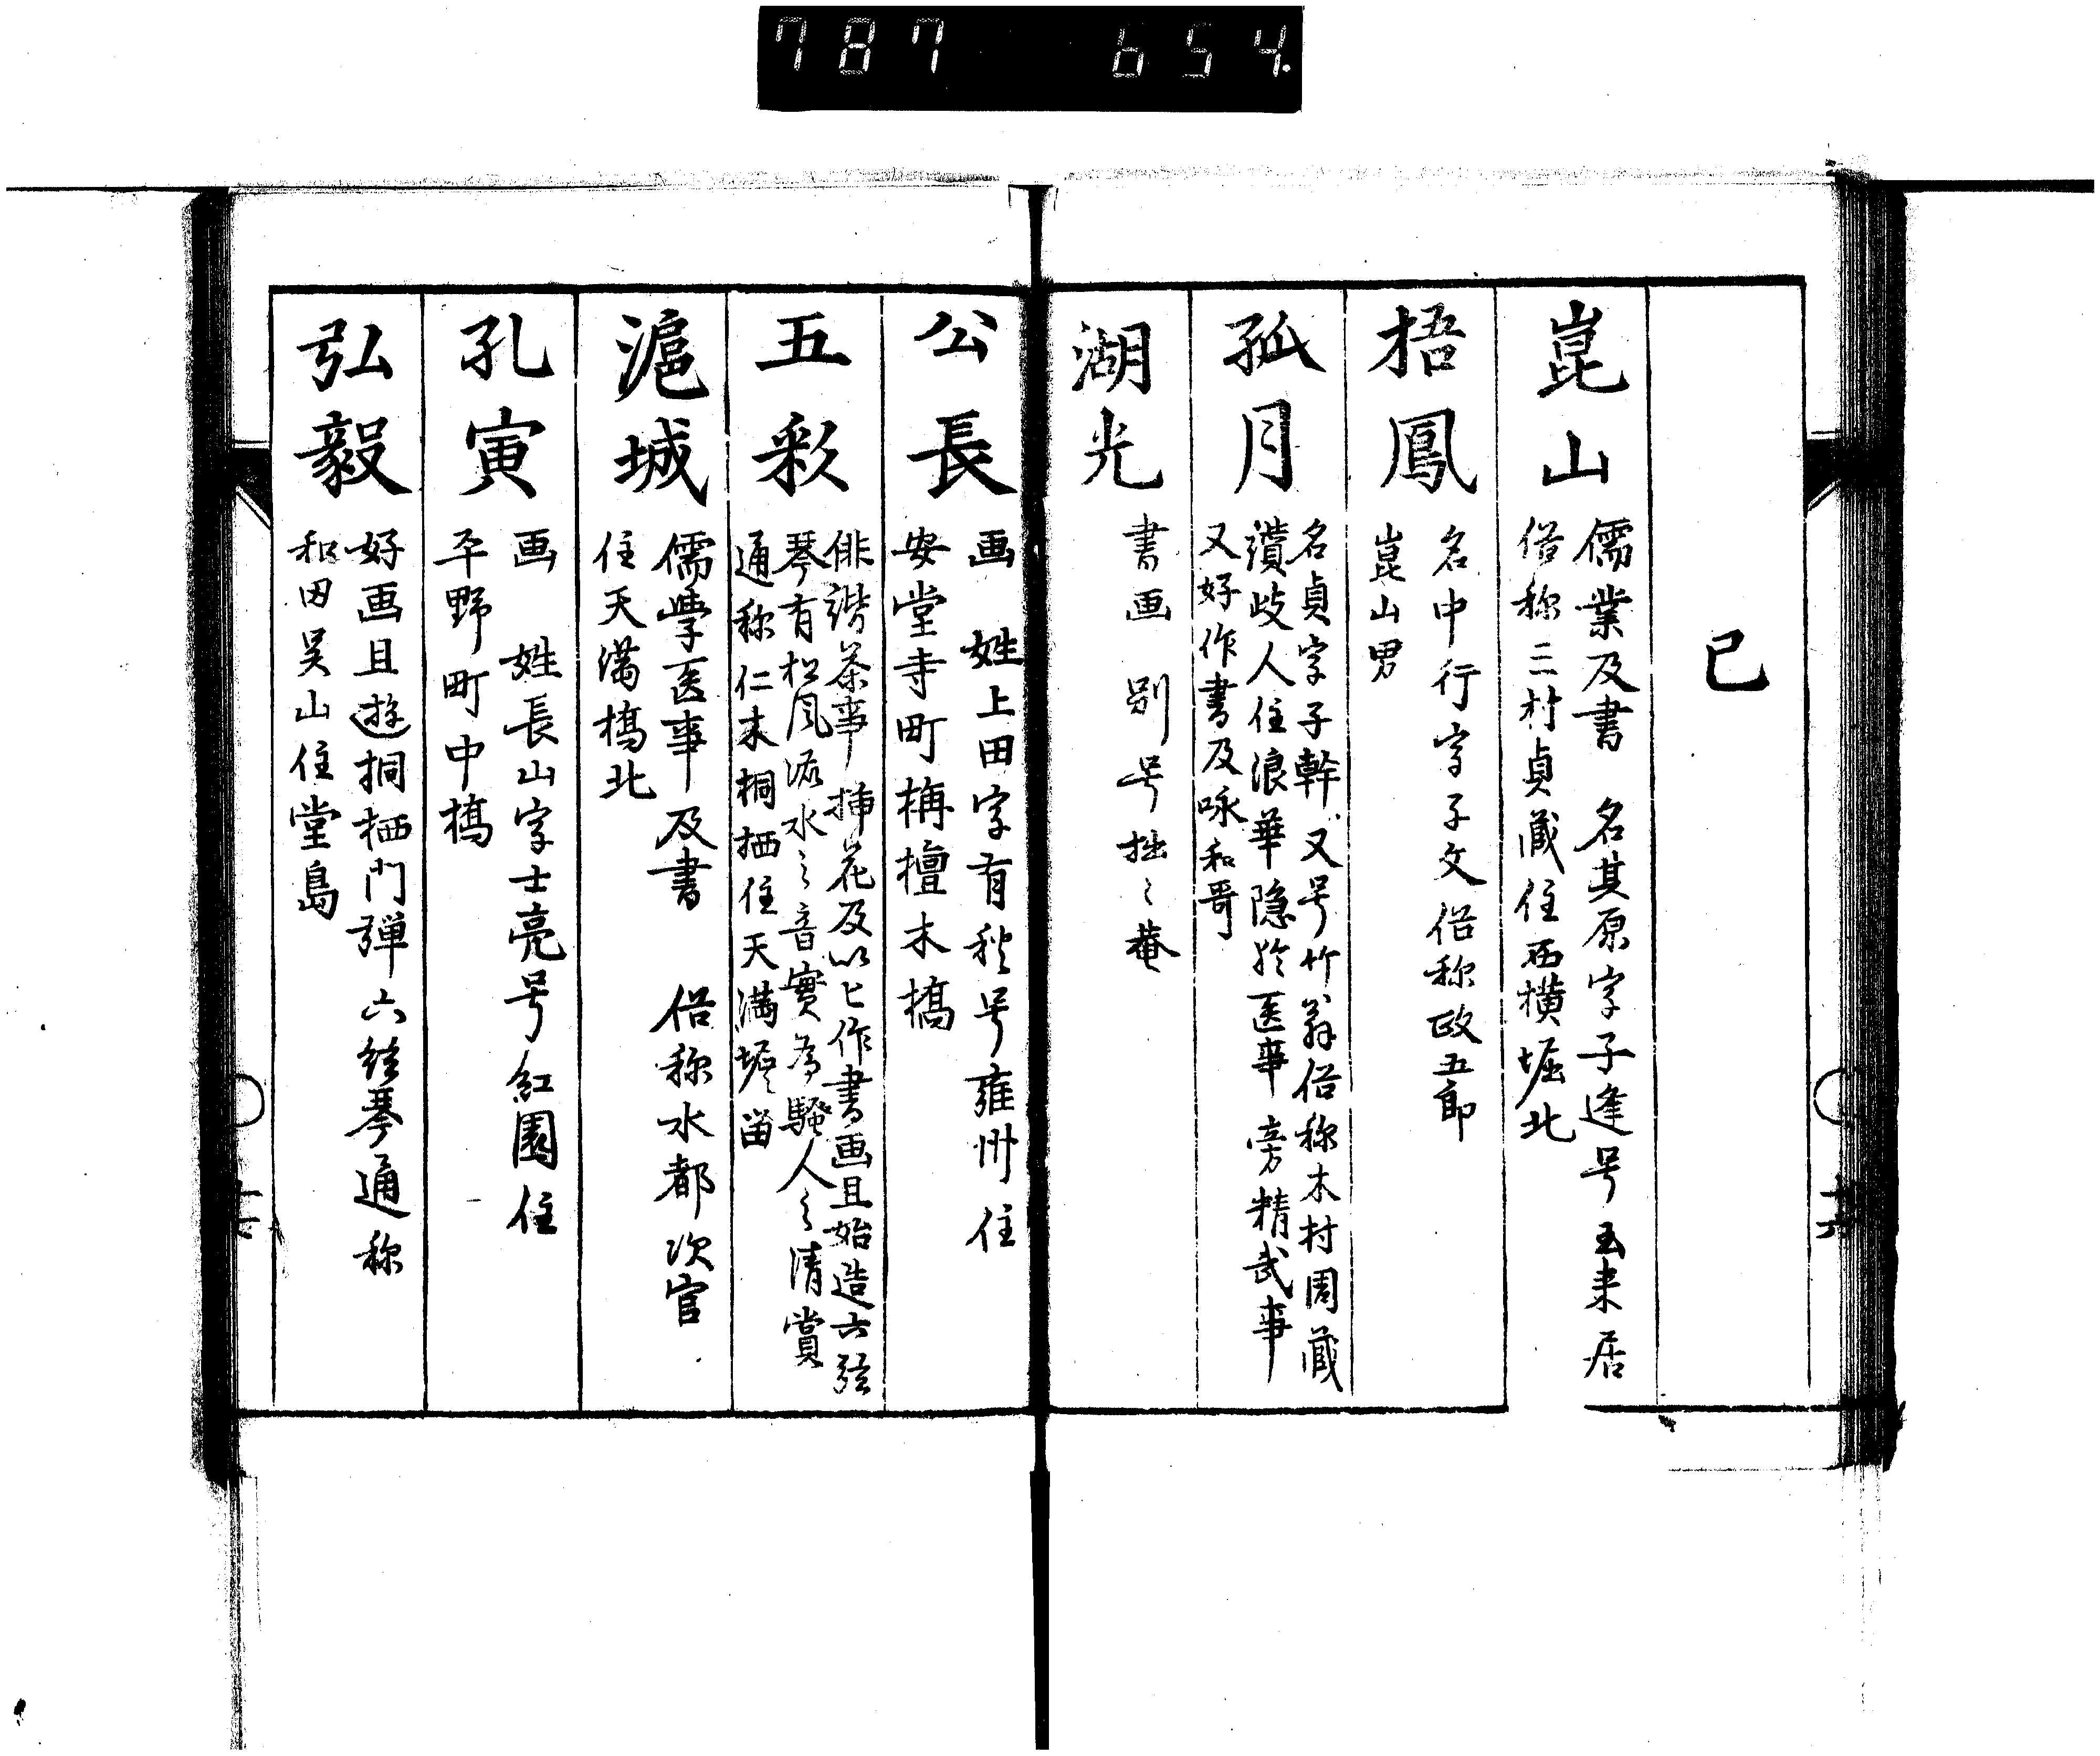 787 654.
己
崑山
儒業及書 名其原字子逢号玉来居
俗称三村貞蔵住西横堀北
梧鳳
名中行字子文俗称政五郎
崑山男
孤月
名貞字子幹又号竹翁俗称木村周蔵
讃岐人住浪華隠於医事旁精武事
又好作書及咏和哥
湖光
書画 別号拙々菴
公長
画 姓上田字有秋号雍州住
安堂寺町梅檀木橋
五彩
俳諧茶事挿花及以匕作書画且始造六弦
琴有松風流水之音實為騒人之清賞
通称仁木桐栖住天満
滬城
儒學医事及書 俗称水都次官
住天満橋北
孔寅
画 姓長山字士亮号紅園住
平野町中橋
弘毅
好画且遊桐栖門弾六絃琴通称
和田吴山住堂島